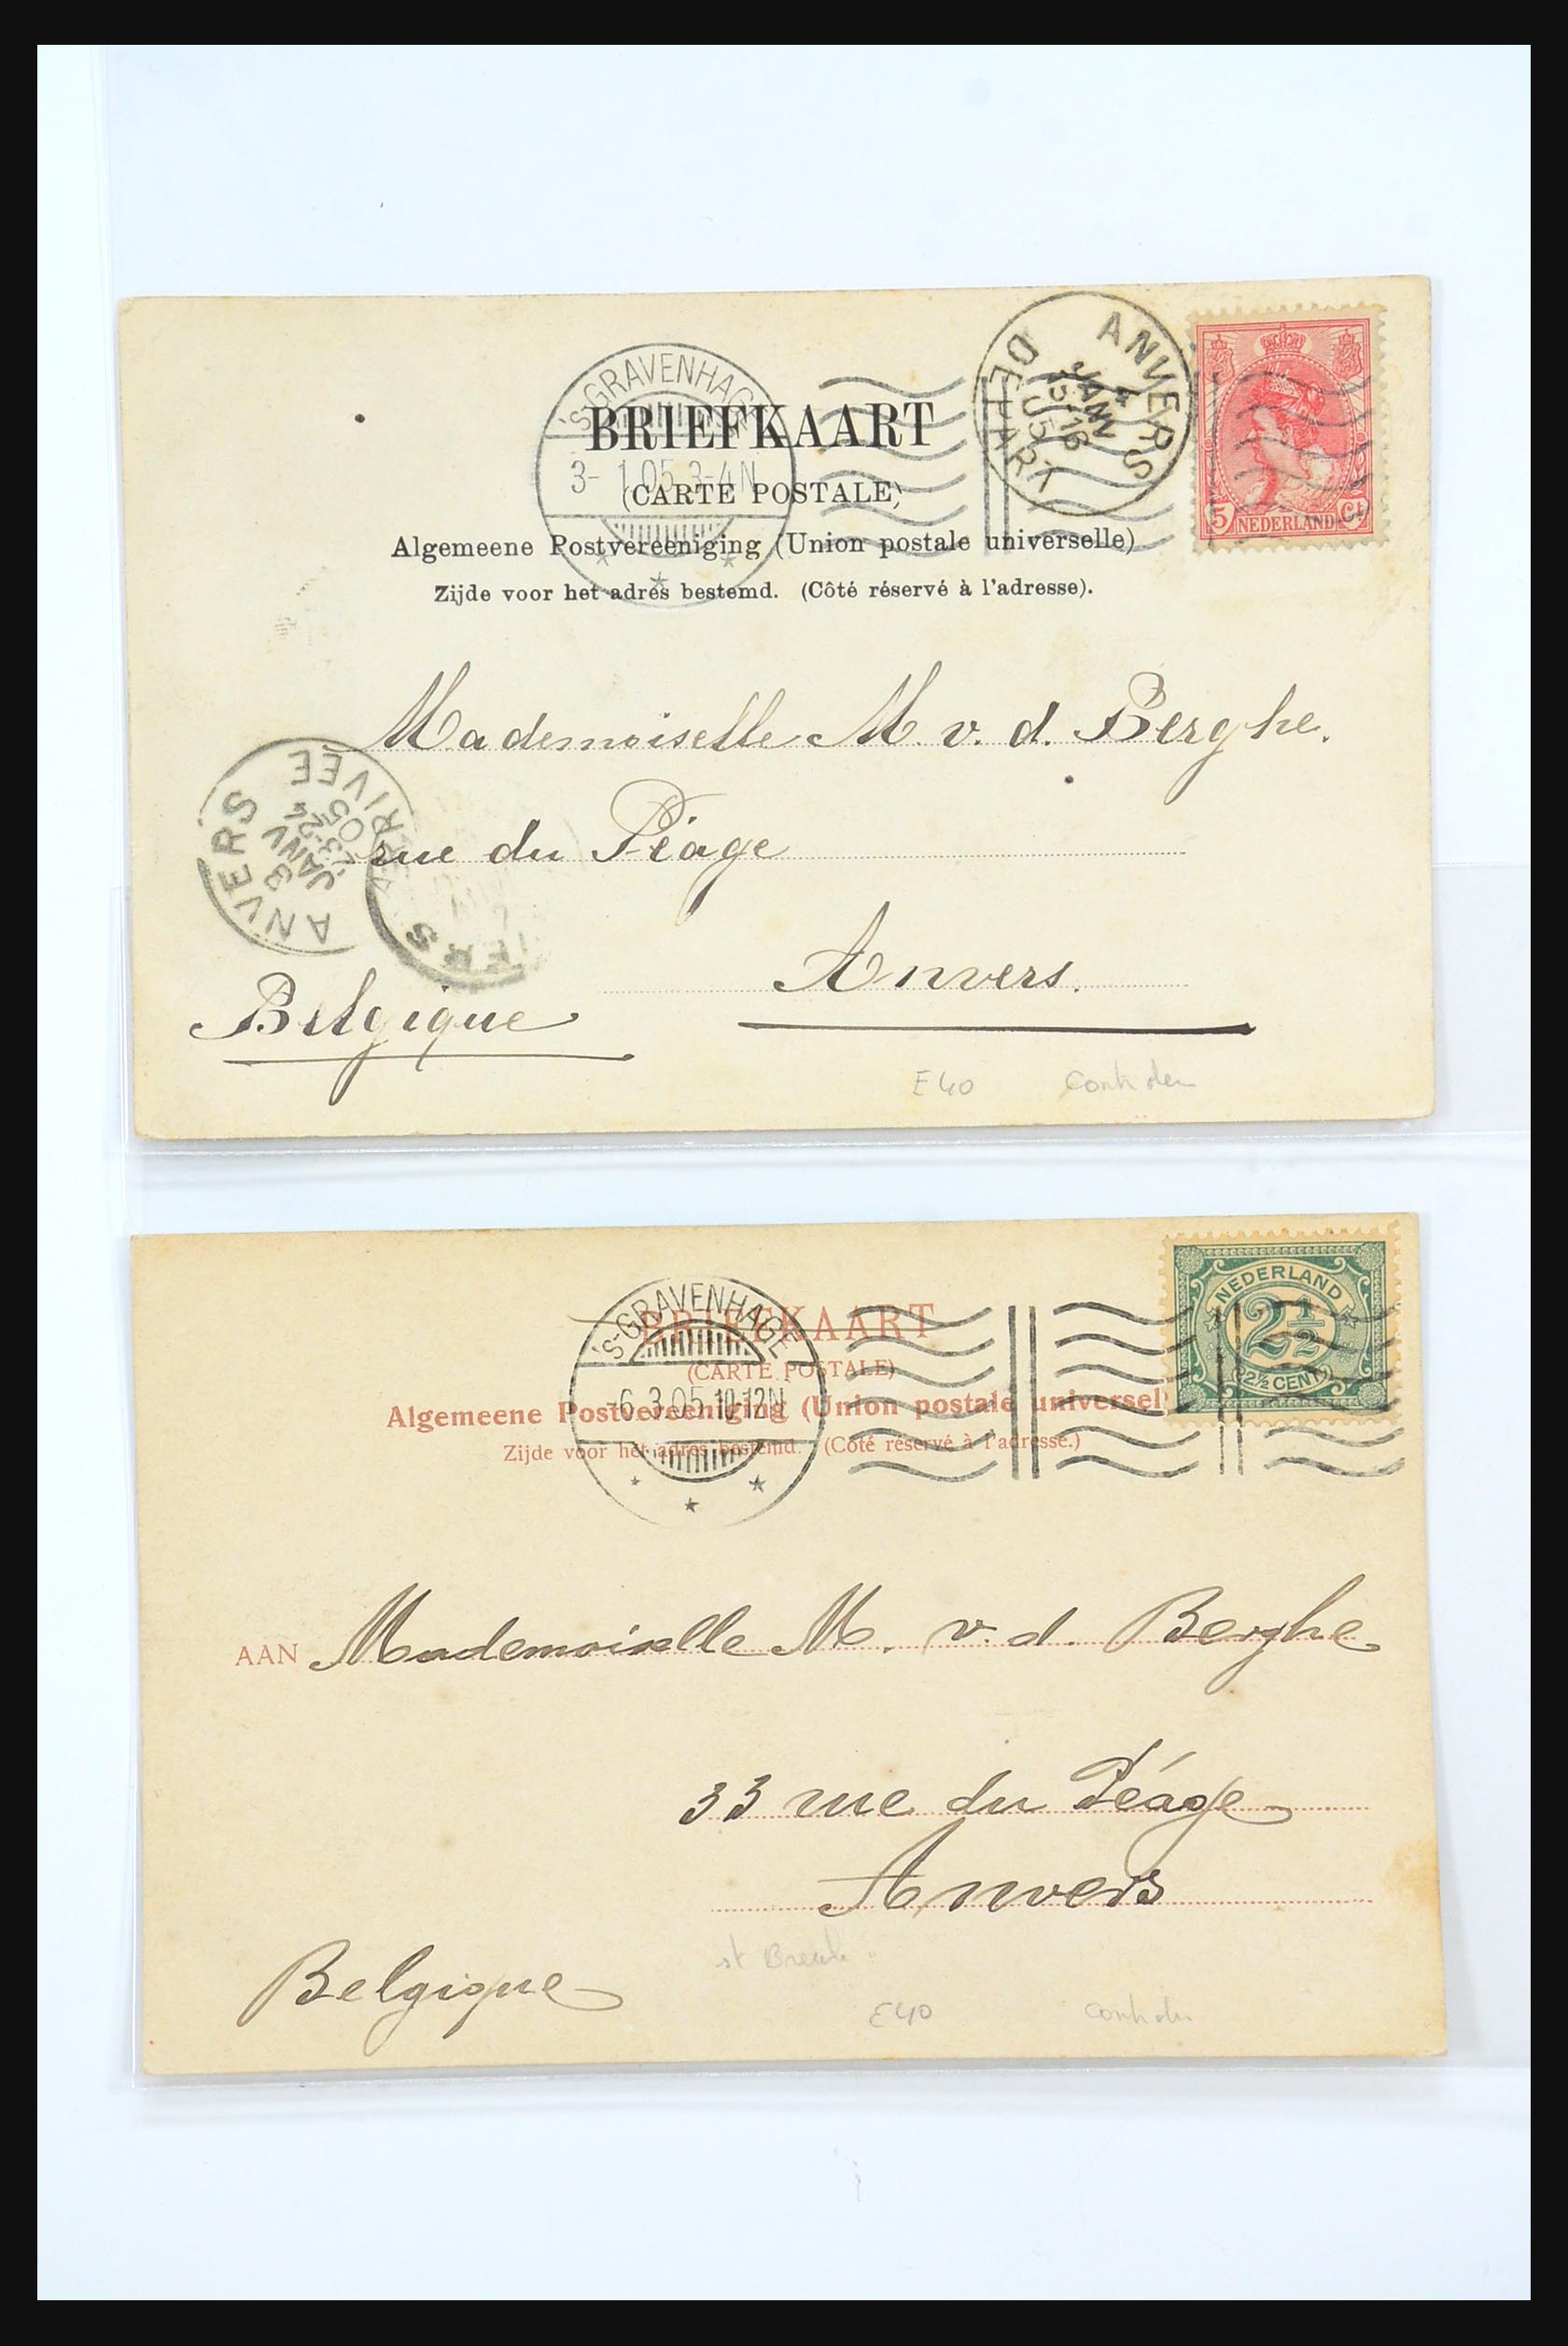 'S-GRAVENHAGE
3- 1.05.3-4N
ANVERS
4
JANV
15-16
05
DEPART
5 NEDERLAND Ct
BRIEFKAART
(CARTE POSTALE)
Algemeene Postvereeniging (Union postale universelle)
Zijde voor het adres bestemd. (Côté réservé à l'adresse).
Mademoiselle M. v. d. Berghe.
rue du Péage
Anvers.
Belgique
ANVERS
3
JANV
23-24
05
ARRIVEE
ERS
E40
'S-GRAVENHAGE
-6.3.05.10-12N
NEDERLAND
2½
(2½ CENT)
BRIEFKAART
(CARTE POSTALE)
Algemeene Postvereeniging (Union postale universel
Zijde voor het adres bestemd. (Côté réservé à l'adresse.)
AAN Mademoiselle M. v. d. Berghe
33 rue du Péage
Anvers
Belgique
E40